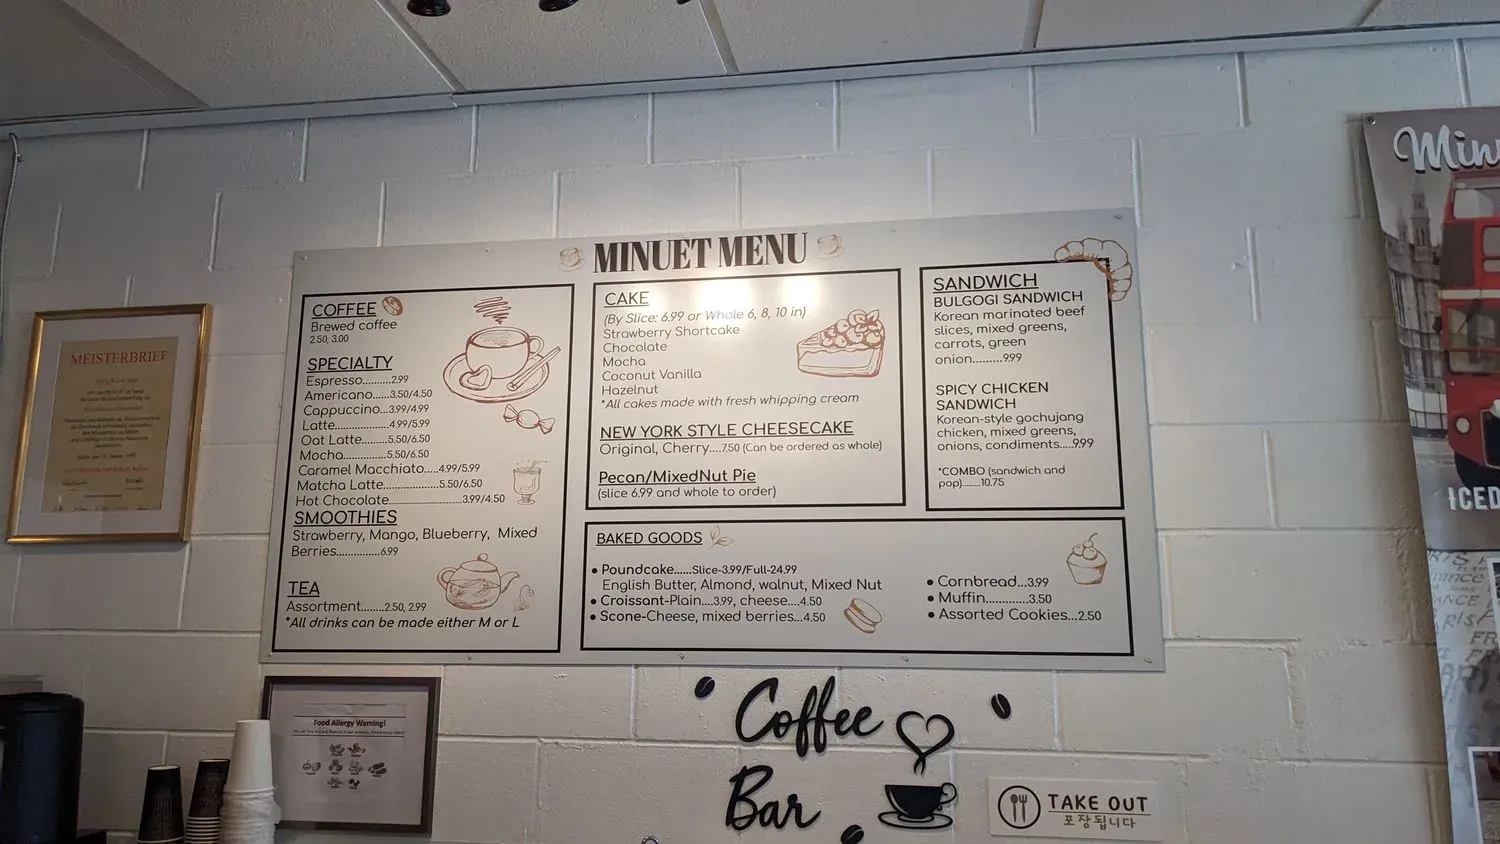 MINUET MENU
COFFEE
Brewed coffee
2.50, 3.00
SPECIALTY
Espresso..........2.99
Americano......3.50/4.50
Cappuccino...3.99/4.99
Latte...............4.99/5.99
Oat Latte........5.50/6.50
Mocha.............5.50/6.50
Caramel Macchiato....4.99/5.99
Matcha Latte.................5.50/6.50
Hot Chocolate.......................3.99/4.50
SMOOTHIES
Strawberry, Mango, Blueberry, Mixed
Berries...............6.99
TEA
Assortment........2.50, 2.99
*All drinks can be made either M or L
CAKE
(By Slice: 6.99 or Whole 6, 8, 10 in)
Strawberry Shortcake
Chocolate
Mocha
Coconut Vanilla
Hazelnut
*All cakes made with fresh whipping cream
NEW YORK STYLE CHEESECAKE
Original, Cherry....7.50 (Can be ordered as whole)
Pecan/MixedNut Pie
(slice 6.99 and whole to order)
SANDWICH
BULGOGI SANDWICH
Korean marinated beef
slices, mixed greens,
carrots, green
onion.........9.99
SPICY CHICKEN
SANDWICH
Korean-style gochujang
chicken, mixed greens,
onions, condiments.....9.99
*COMBO (sandwich and
pop)........10.75
BAKED GOODS
• Poundcake......Slice-3.99/Full-24.99
English Butter, Almond, walnut, Mixed Nut
• Croissant-Plain....3.99, cheese....4.50
• Scone-Cheese, mixed berries....4.50
• Cornbread...3.99
• Muffin.............3.50
• Assorted Cookies...2.50
MEISTERBRIEF
Food Allergy Warning!
Coffee
Bar
TAKE OUT
포장됩니다